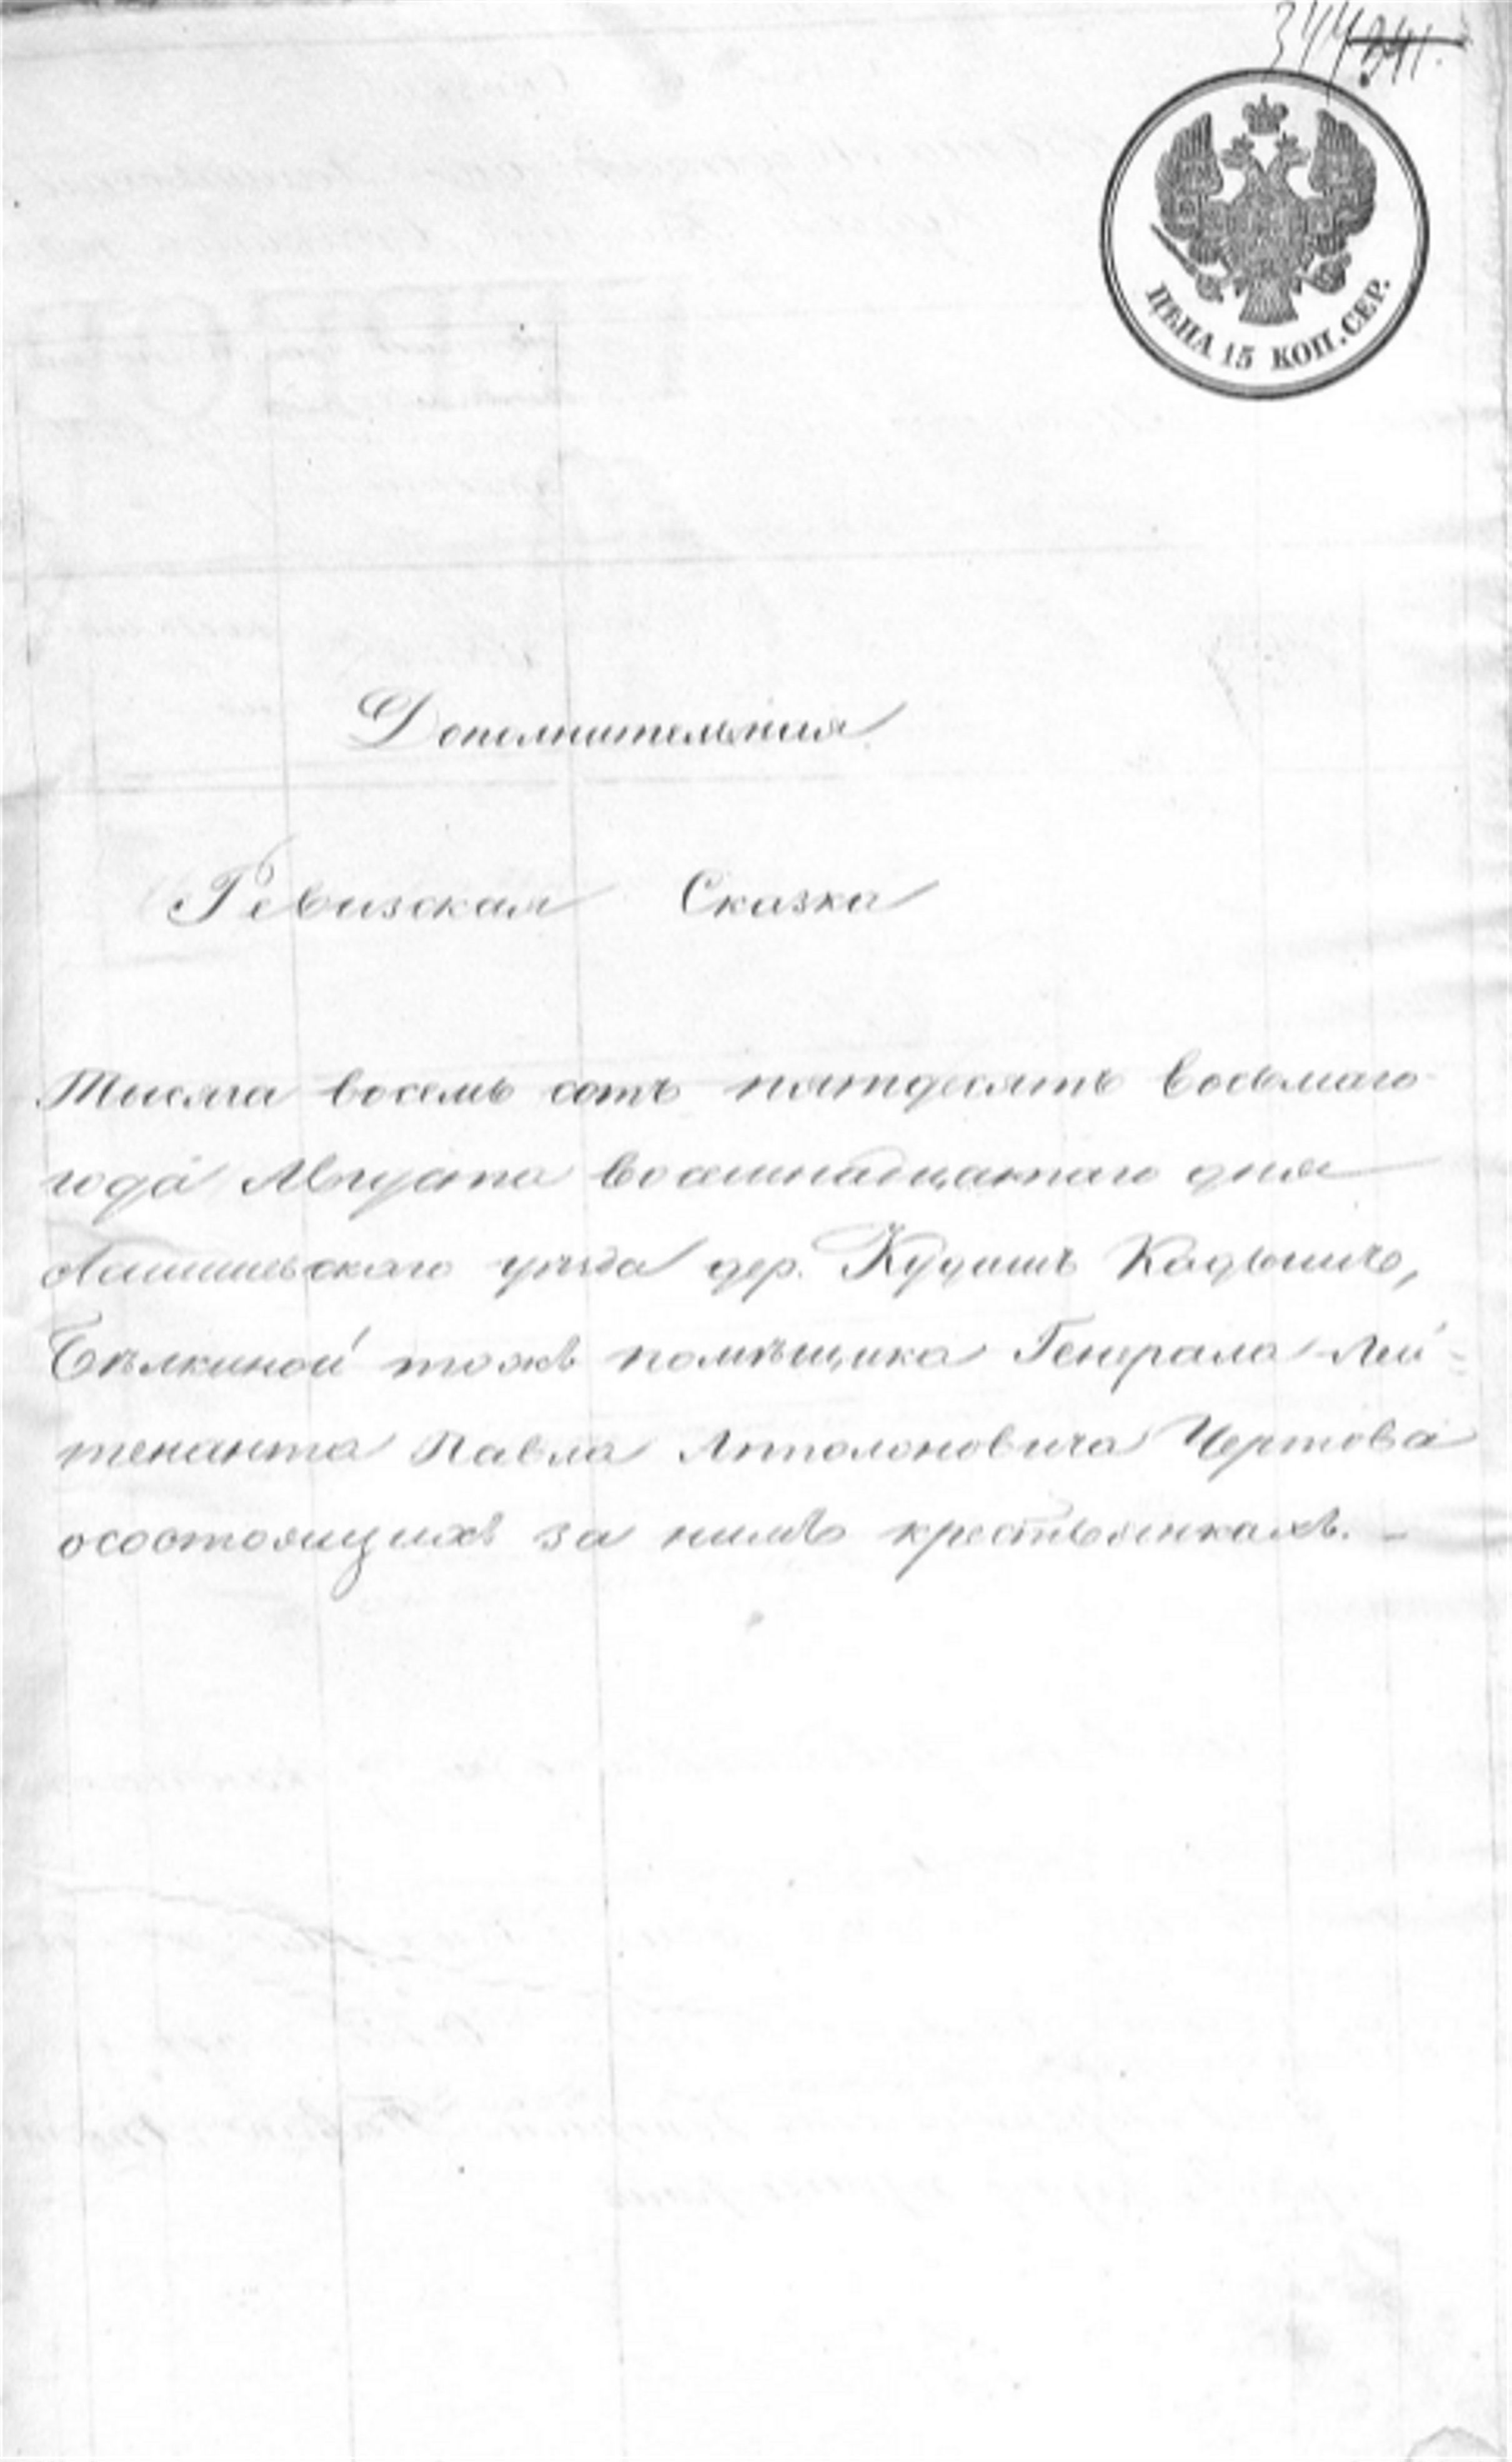 344
ЦѢНА 15 КОП. СЕР.
Дополнительная
Ревизская Сказка
Тысяча восемь сотъ пятдесятъ восьмаго
года Августа восемнадцатаго дня
Лаишевскаго уѣзда дер. Кудашъ Кадышъ,
Бѣлкиной тожъ помѣщика Генерала-Лей-
тенанта Павла Апполоновича Чертова
осостоящихъ за нимъ крестьянкахъ. –